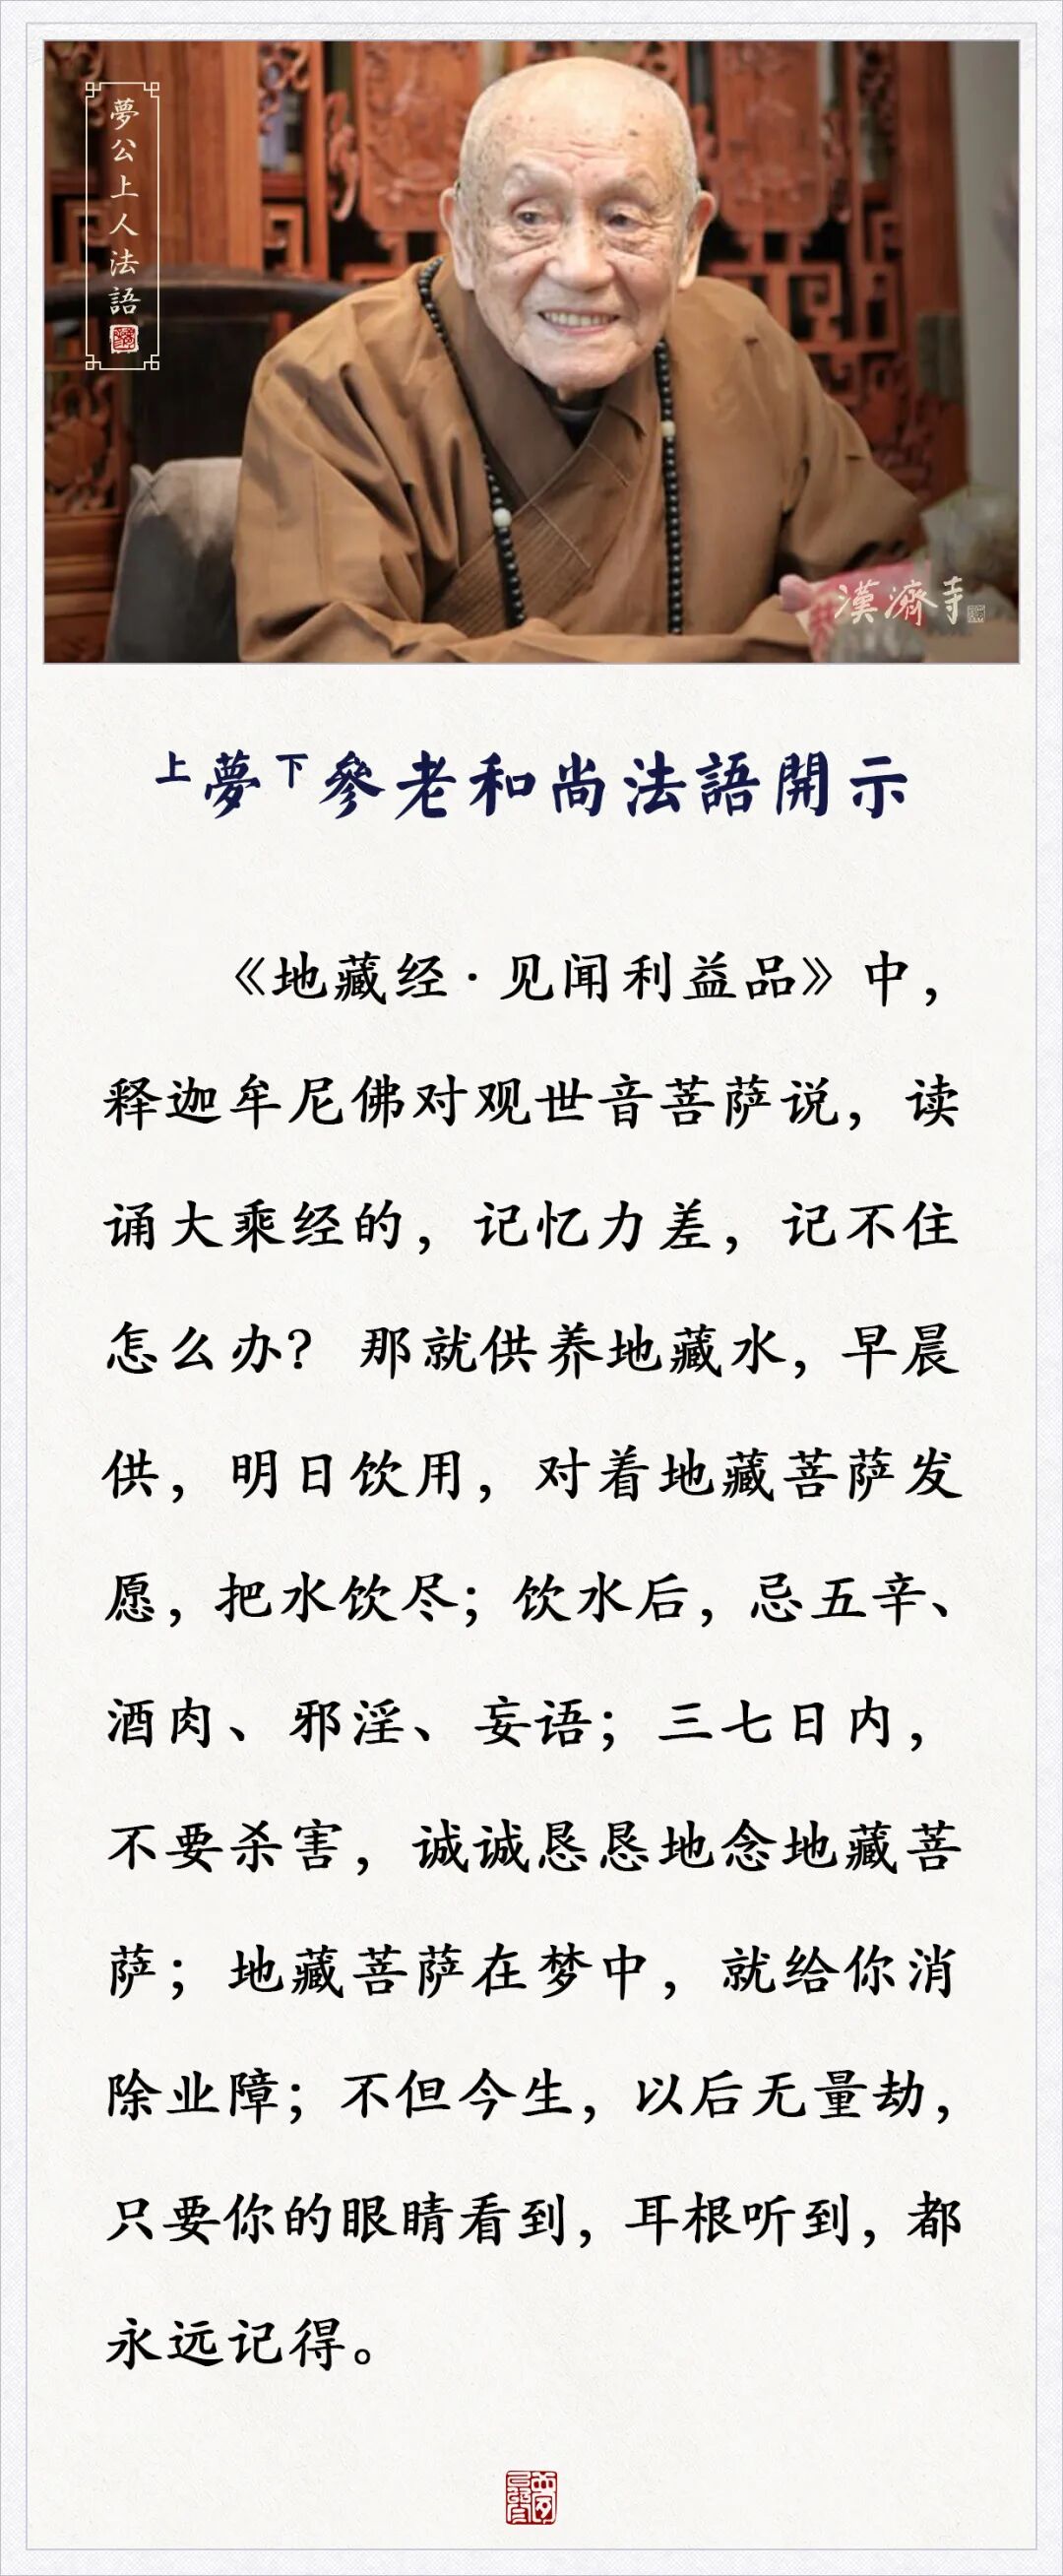 夢公上人法語
漢濟寺
上夢下參老和尚法語開示
《地藏经·见闻利益品》中，
释迦牟尼佛对观世音菩萨说，读
诵大乘经的，记忆力差，记不住
怎么办？那就供养地藏水，早晨
供，明日饮用，对着地藏菩萨发
愿，把水饮尽；饮水后，忌五辛、
酒肉、邪淫、妄语；三七日内，
不要杀害，诚诚恳恳地念地藏菩
萨；地藏菩萨在梦中，就给你消
除业障；不但今生，以后无量劫，
只要你的眼睛看到，耳根听到，都
永远记得。